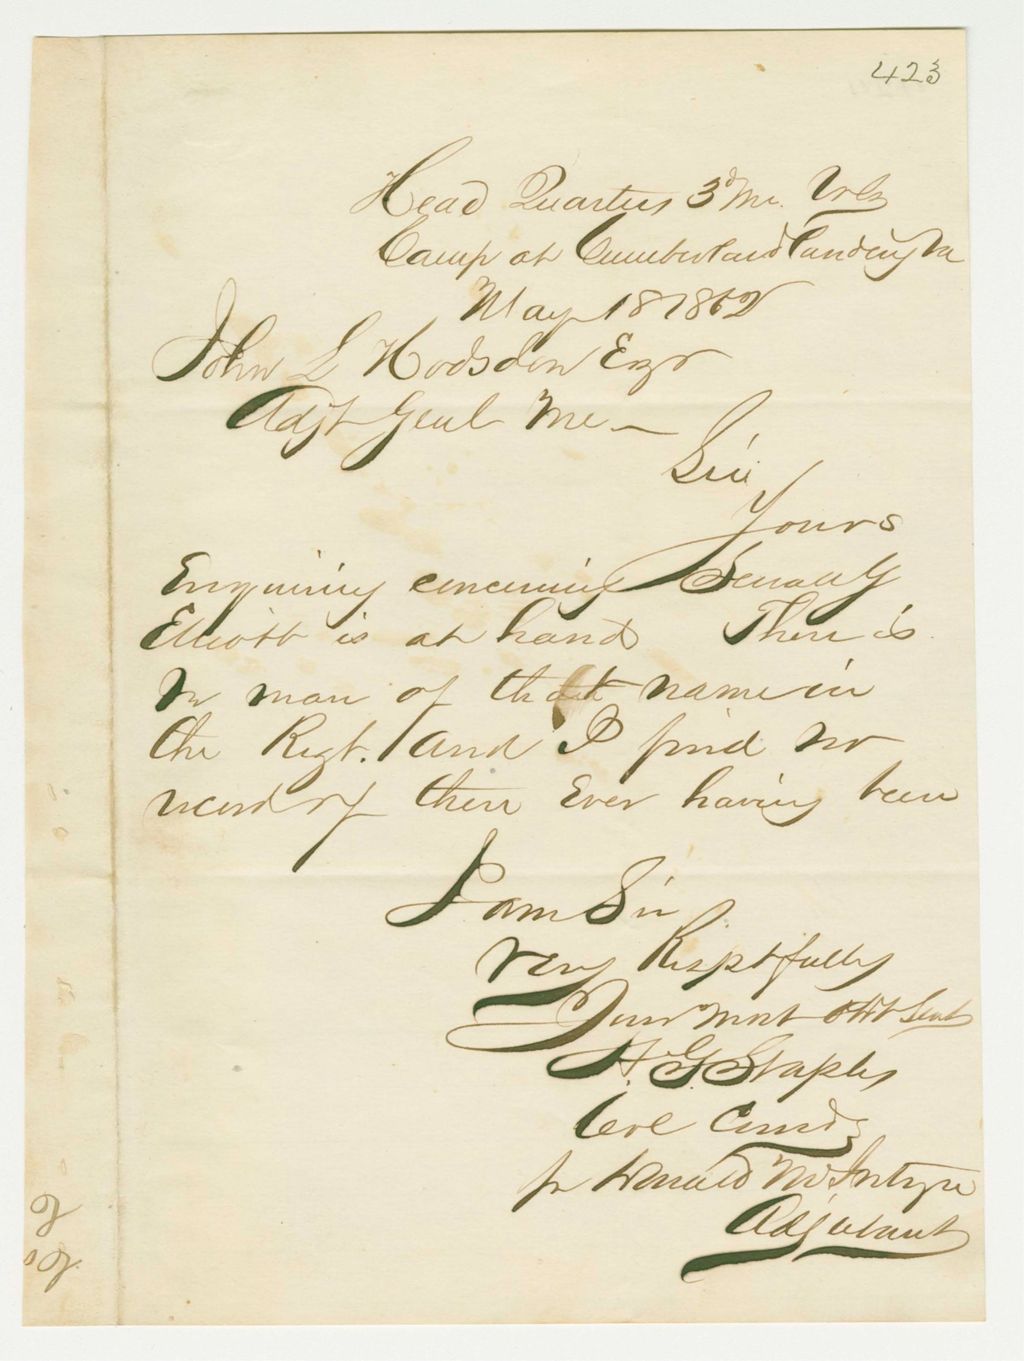 423
Head Quarters 3d Me. Vols
Camp at Cumberland Landing Va
May 18 1862
John L Hodsdon Esqr
Adjt Genl Me —
Sir
Yours
Enquiring concerning
Elliott is at hand There is
no man of that name in
the Regt. and I find no
record of there Ever having been
I am Sir
very Respctfully
Your most Obt Servt
H. G. Staples
Col Comdg
pr Donald McIntyre
Adjutant